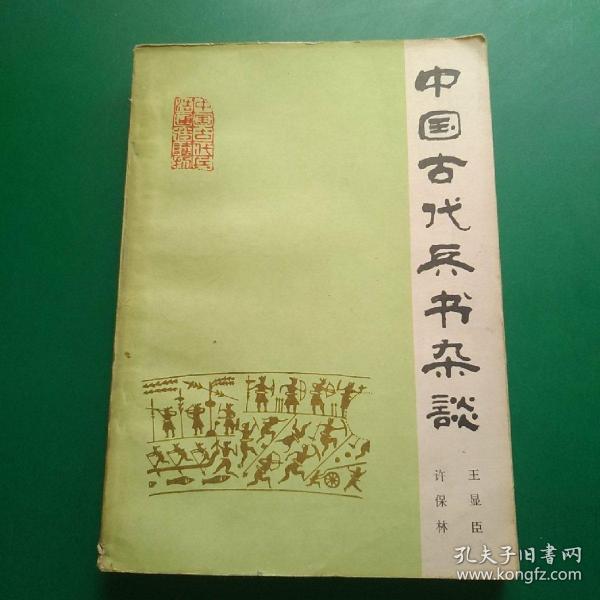 中国古代兵书杂談
王显臣
许保林
中国古代兵
法通俗读物
孔夫子旧书网
www.kongfz.com